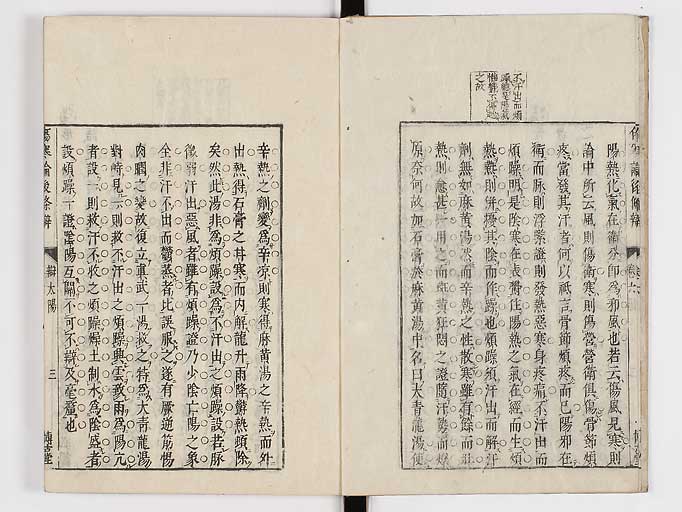 不汗出而煩
之故
陽熱化氣在衛分即爲和風也若云傷風見寒則
論中所云風則傷衛寒則傷營營衛俱傷骨節煩
疼當發其汗者何以祇言骨節煩疼而已陽邪在
衛而脉則浮緊證則發熱惡寒身疼痛不汗出而
煩躁明是陰寒在表鬱住陽熱之氣在經而生煩
熱熱則併擾其陰而作躁也煩躁須汗出而解汗
劑無如麻黄湯然而辛熱之性散寒雖有餘而壯
熱則愈甚一用之而
狂悶之證隨汗勢而
原奈何故加石膏於麻黄湯中名曰大青龍湯使
辛熱之劑變爲辛凉則寒得麻黄湯之辛熱而外
出熱得石膏之甘寒而内解龍升雨降鬱熱頓除
矣然此湯非爲煩躁設爲不汗出之煩躁設若脉
微弱汗出惡風者雖有煩躁證乃少陰亡陽之象
全非汗不出而鬱蒸者比誤服之遂有厥逆筋惕
肉瞤之變故復立真武一湯救之特爲大青龍湯
對峙見一則救不汗出之煩躁興雲致雨爲陽亢
者設一則救汗不收之煩躁燥土制水爲陰盛者
設煩躁一證陰陽互關不可不辯及毫釐也
傷寒論後條辨
辯太陽
三